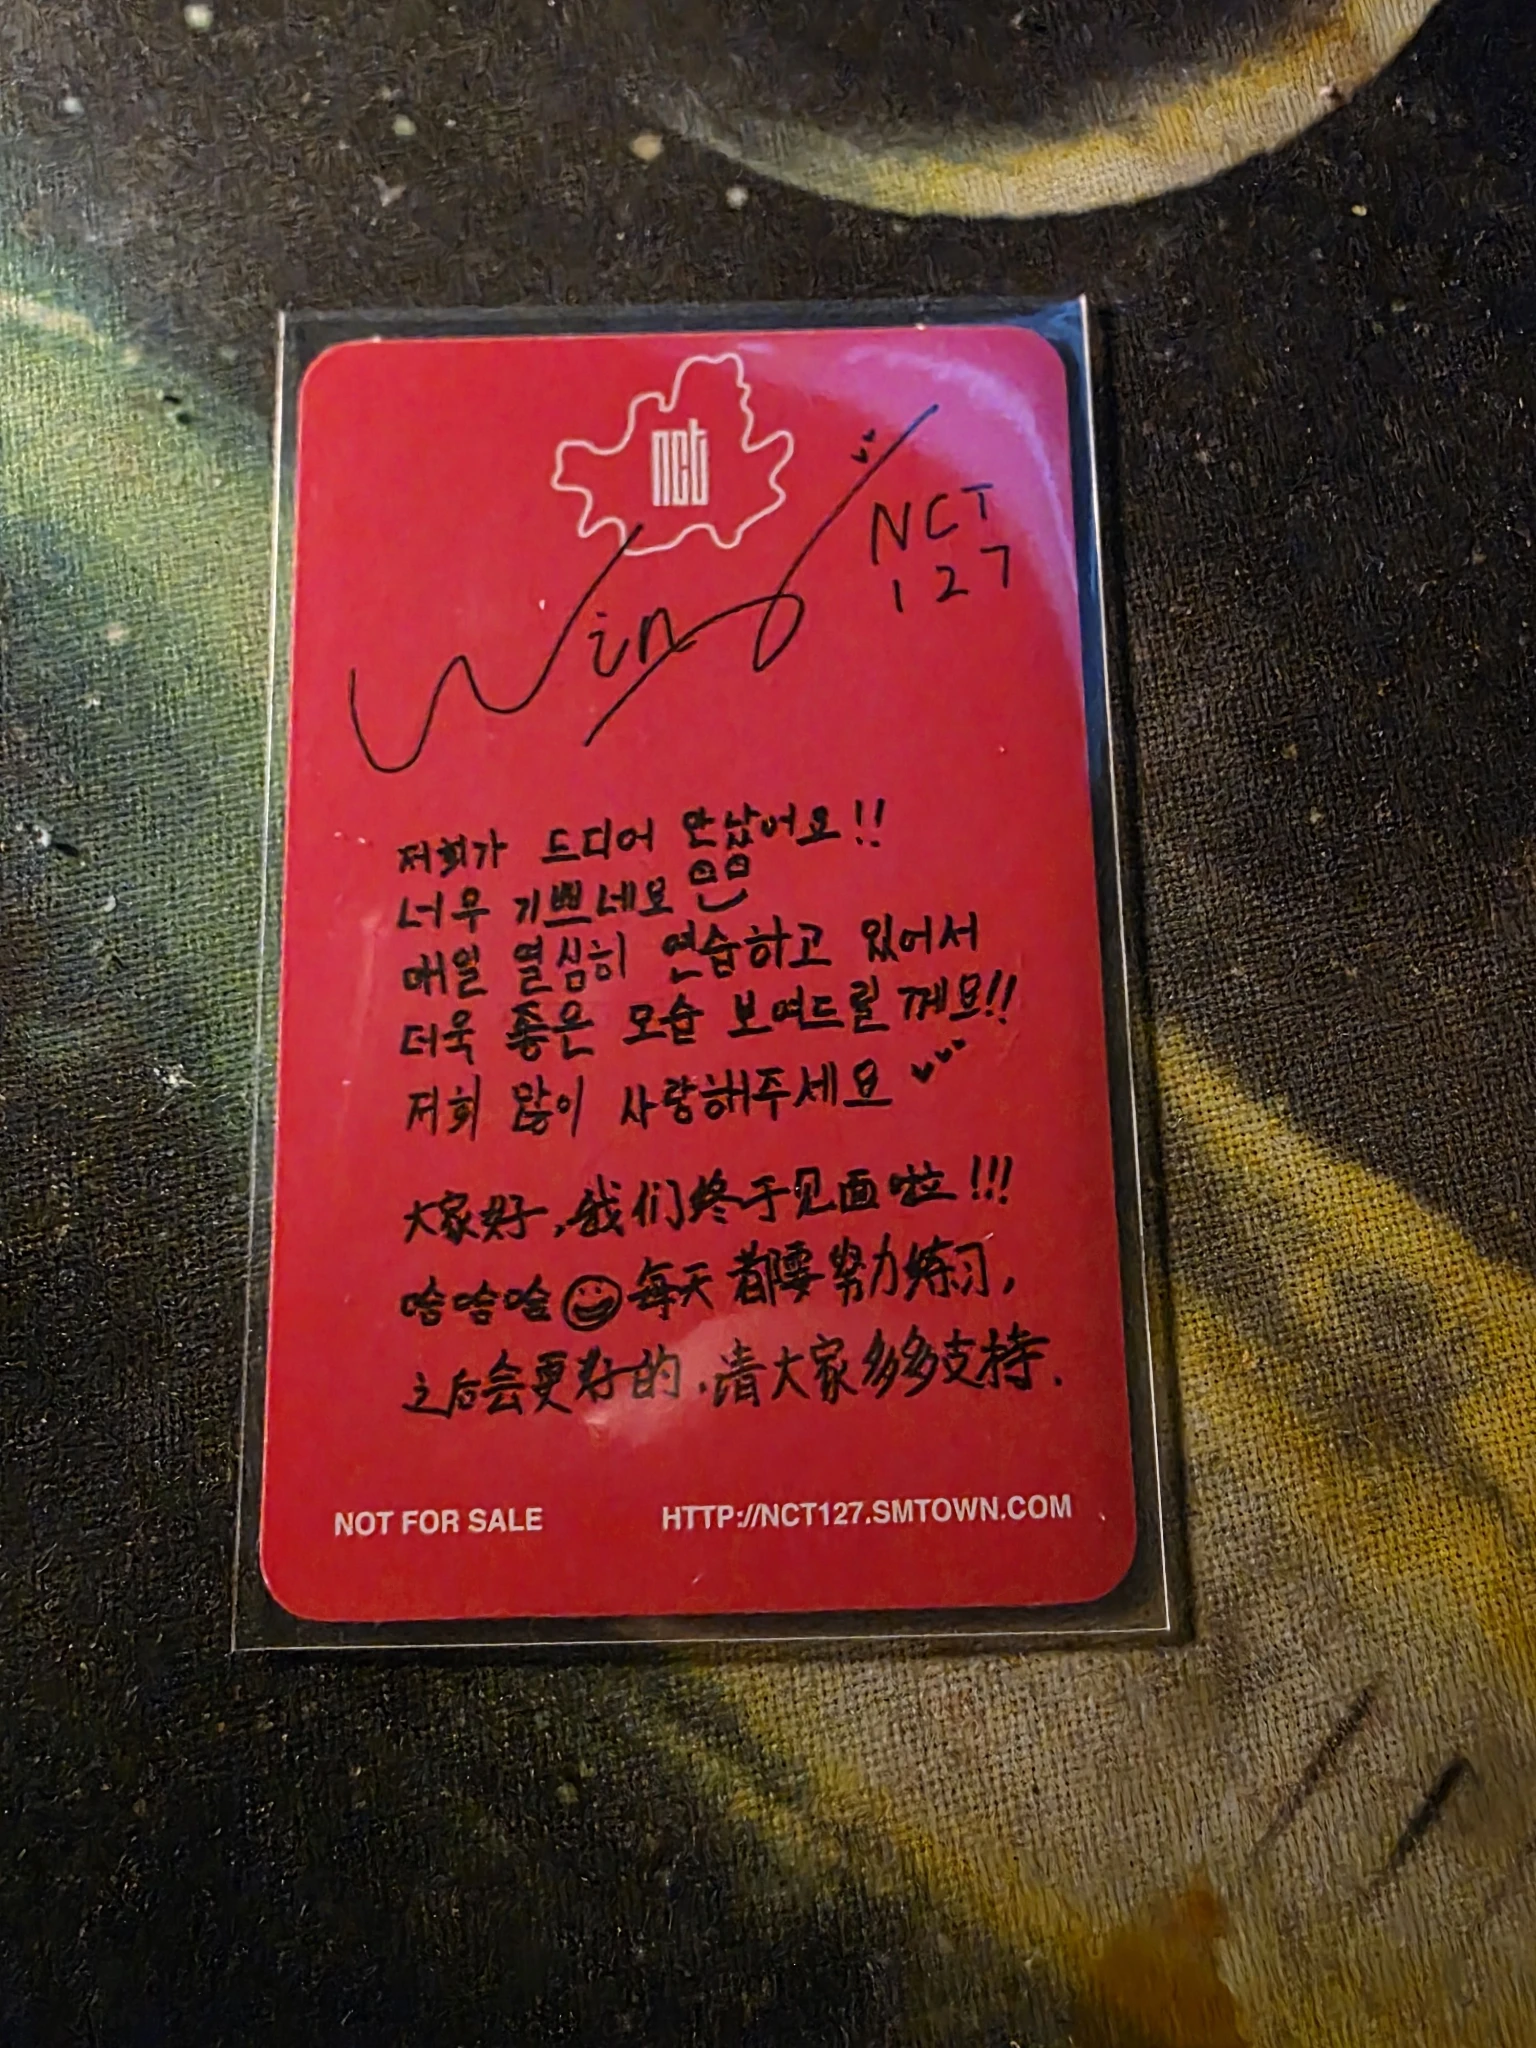 nct
Win
NCT
127
저희가 드디어 만났어요!!
너무 기쁘네요
매일 열심히 연습하고 있어서
더욱 좋은 모습 보여드릴께요!!
저희 많이 사랑해주세요
大家好,我们终于见面啦!!!
哈哈哈 每天都要努力练习,
之后会更好的,请大家多多支持.
NOT FOR SALE HTTP://NCT127.SMTOWN.COM